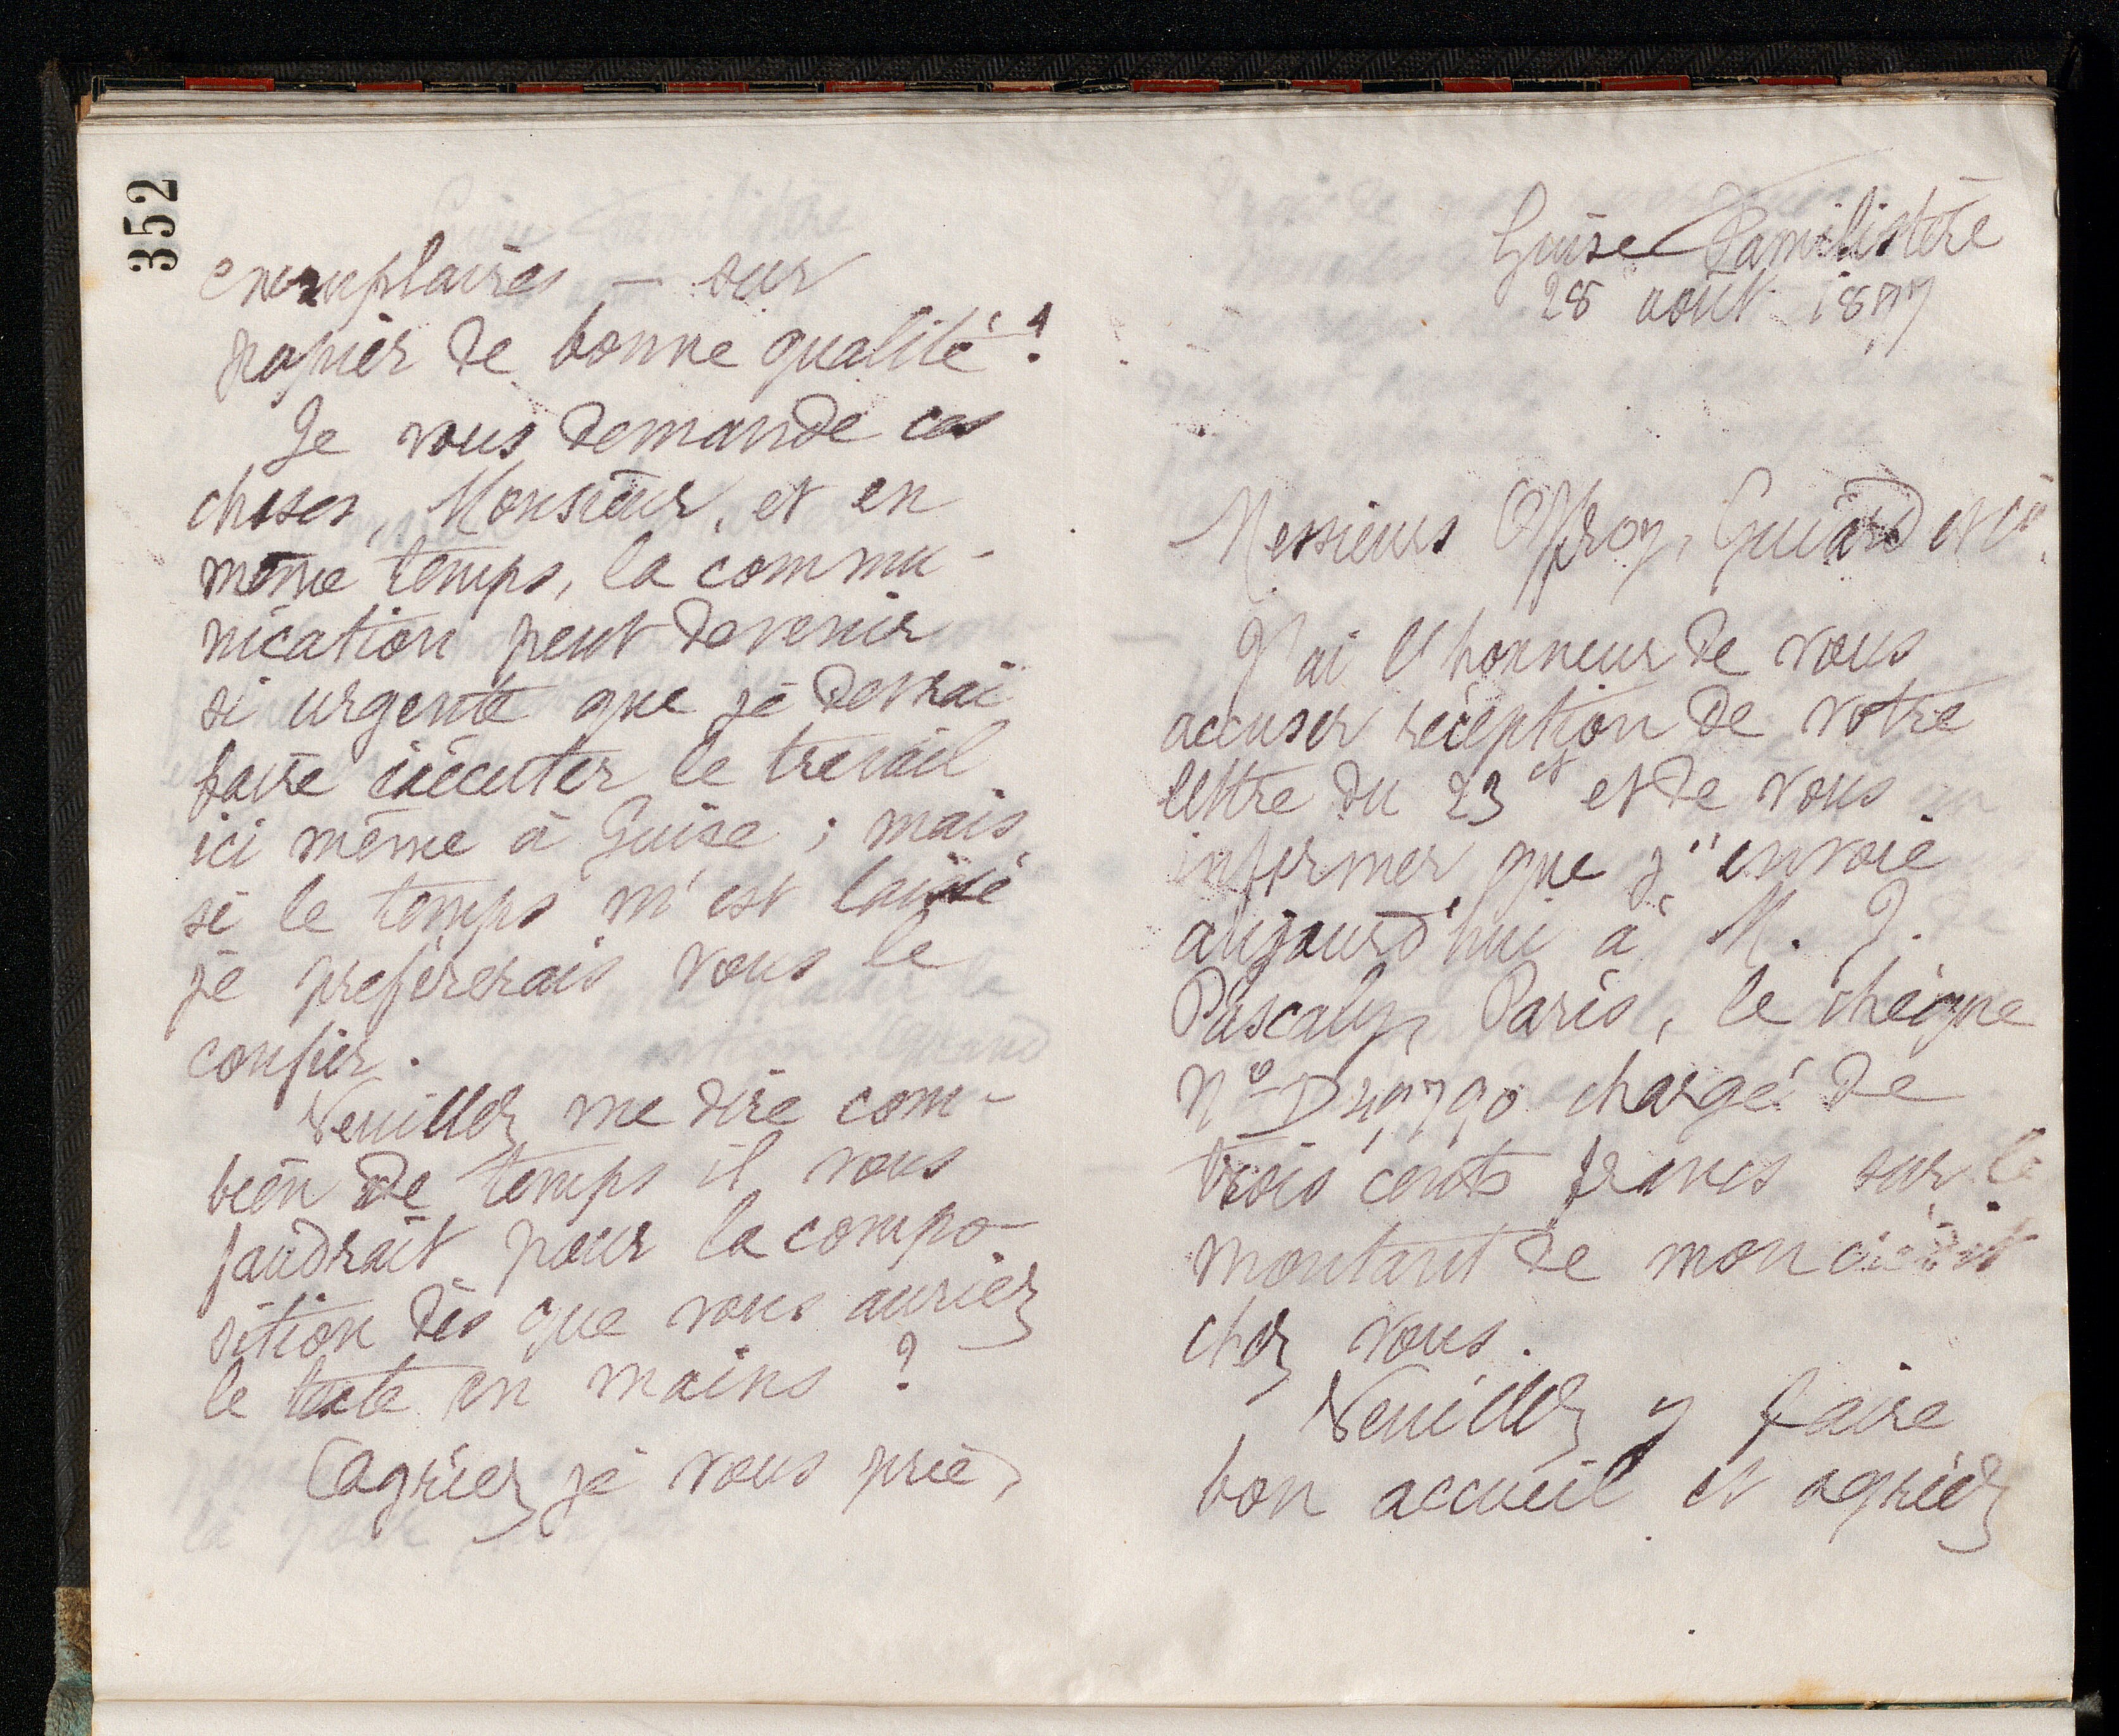 352
exemplaires – sur
papier de bonne qualité ?
Je vous demande ces
choses, Monsieur, et en
même temps, la commu-
nication peut devenir
si urgente que je devrai
faire exécuter le travail
ici même à Guise ; mais
si le temps m'est laissé
je préfèrerais vous le
confier.
Veuillez me dire com-
bien de temps il vous
faudrait pour la compo-
sition dès que vous auriez
le texte en mains ?
Eagréez je vous prie,
Guise Familistère
28 août 1877
Messieurs Offroy, Guiard et Cie.
J'ai l'honneur de vous
accuser réception de votre
lettre du 23 ct et de vous
informer que j'envoie
aujourd'hui à M. J.
Pascaly, Paris, le chèque
N° D 49790 chargé de
trois cents francs sur le
montant de mon crédit
chez vous.
Veuillez y faire
bon accueil et agréez